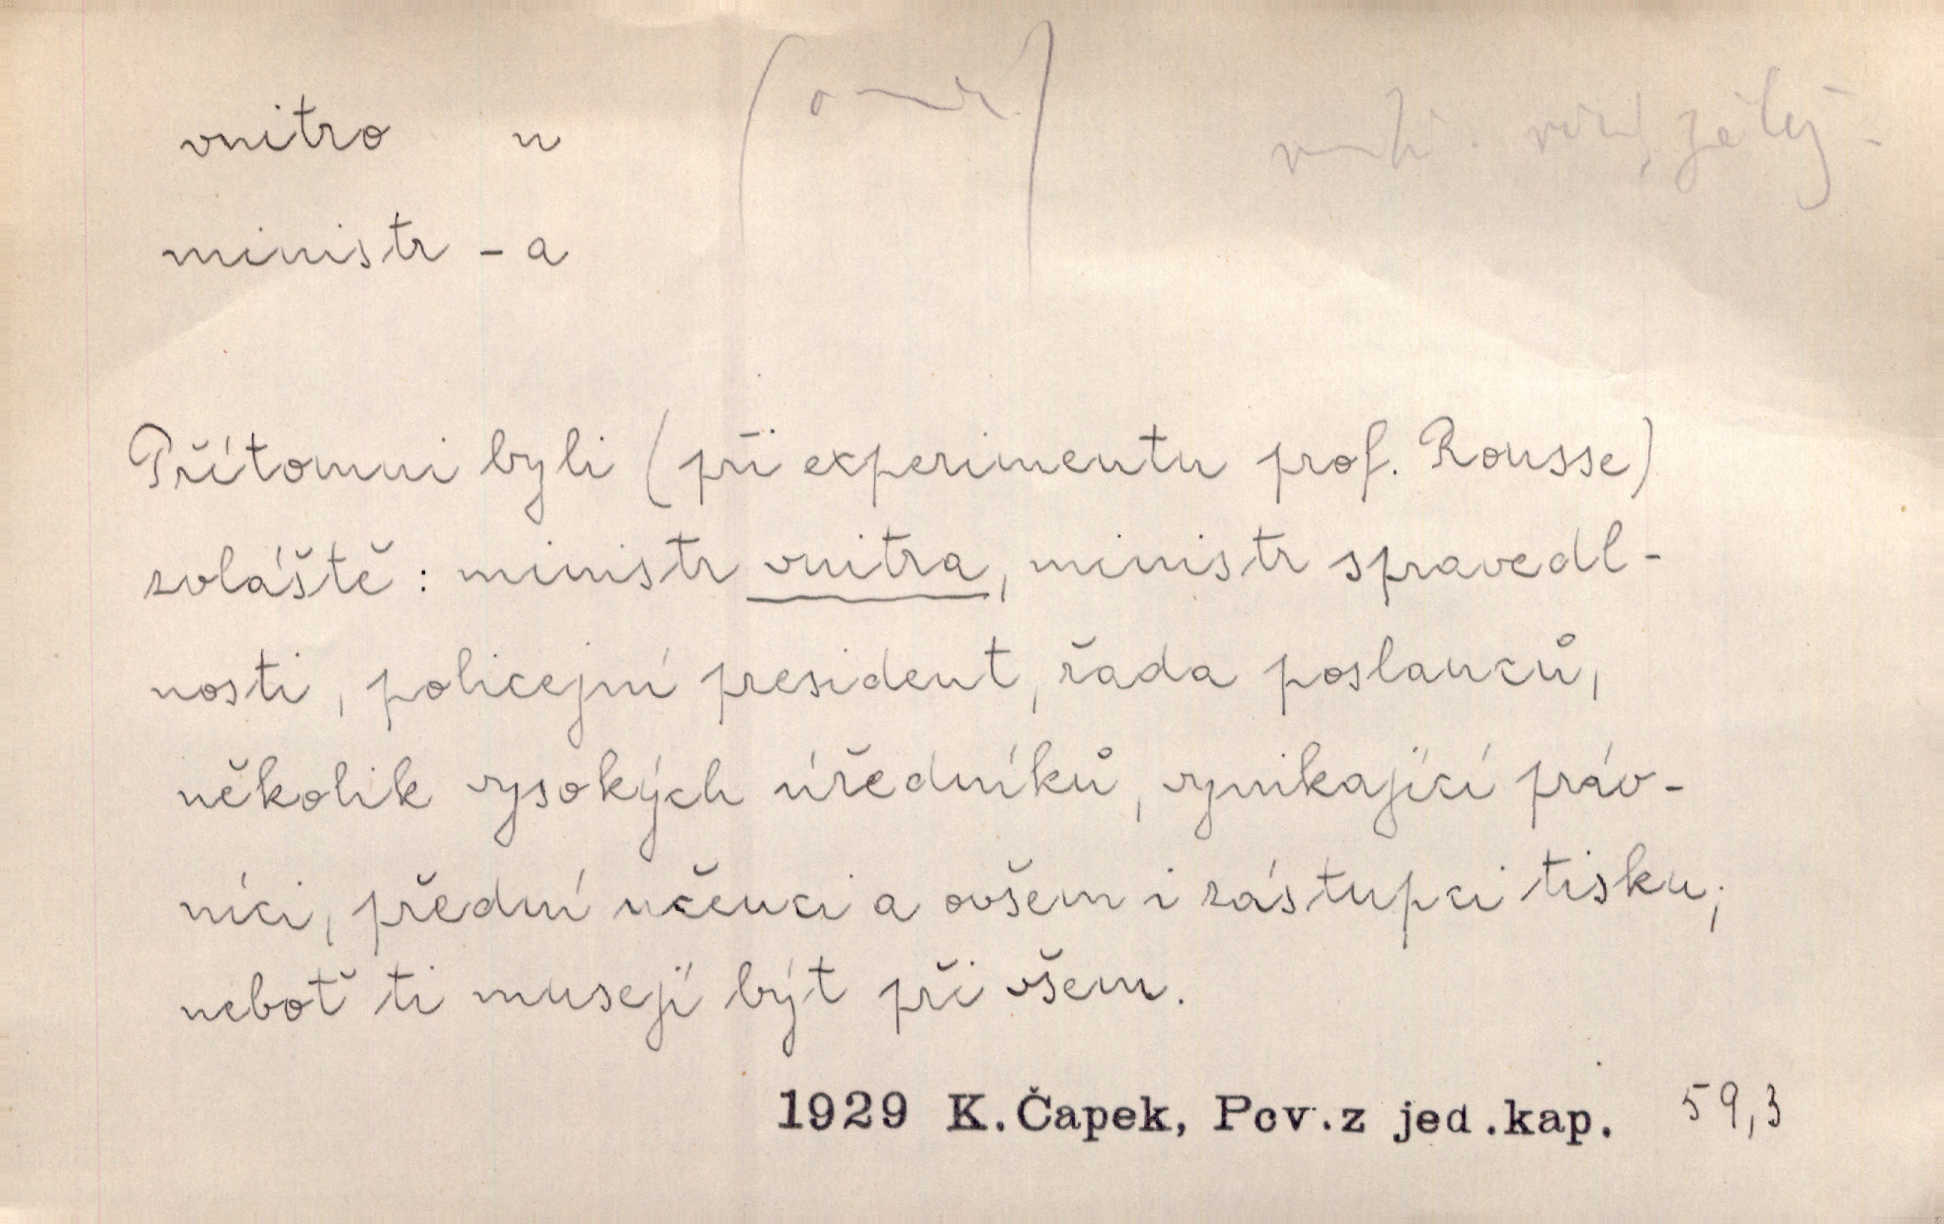 vnitro n
ministr - a
Přítomni byli (při experimentu prof. Rousse)
zvláště: ministr vnitra, ministr spravedl-
nosti, policejní president, řada poslanců,
několik vysokých úředníků, vynikající práv-
níci, přední učenci a ovšem i zástupci tisku;
neboť ti musejí být při všem.
1929 K. Čapek, Pov. z jed. kap. 59,3